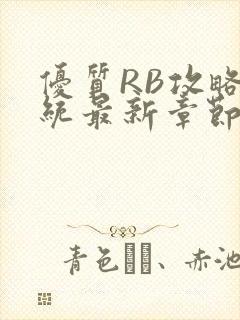 優質RB攻略
統最新章節
青色、赤池